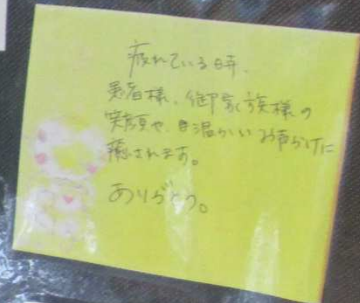 疲れている時、
患者様、御家族様の
笑顔や、温かいお声がけに
癒されます。
ありがとう。